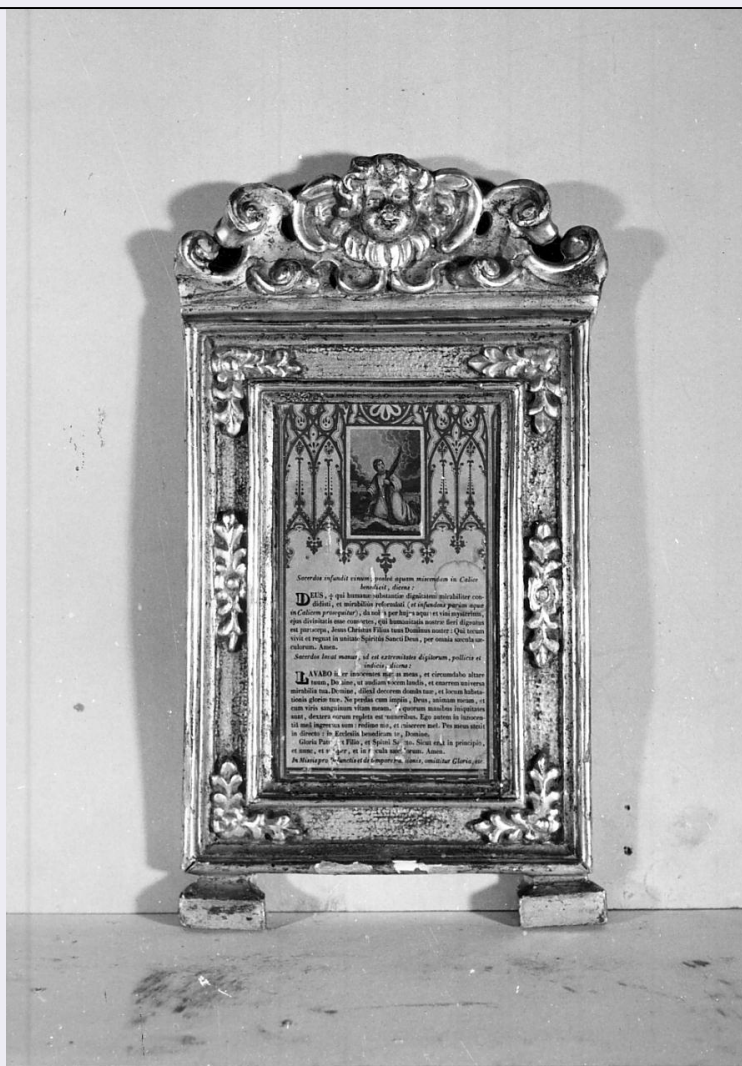 Sacerdos infundit vinum, postea aquam miscendam in Calice
benedicit, dicens:
DEUS, qui humanæ substantiæ dignitatem mirabiliter con-
didisti, et mirabilius reformasti (et infundens parum aquæ
in Calicem prosequitur), da nobis per hujus aquæ et vini mysterium,
ejus divinitatis esse consortes, qui humanitatis nostræ fieri dignatus
est particeps, Jesus Christus Filius tuus Dominus noster: Qui tecum
vivit et regnat in unitate Spiritûs Sancti Deus, per omnia sæcula sæ-
culorum. Amen.
Sacerdos lavat manus, id est extremitates digitorum, pollicis et
indicis, dicens:
LAVABO inter innocentes manus meas, et circumdabo altare
tuum, Domine, ut audiam vocem laudis, et enarrem universa
mirabilia tua. Domine, dilexi decorem domûs tuæ, et locum habita-
tionis gloriæ tuæ. Ne perdas cum impiis, Deus, animam meam, et
cum viris sanguinum vitam meam. In quorum manibus iniquitates
sunt, dextera eorum repleta est muneribus. Ego autem in innocen-
tiâ meâ ingressus sum: redime me, et miserere mei. Pes meus stetit
in directo: in Ecclesiis benedicam te, Domine.
Gloria Patri, et Filio, et Spiritui Sancto. Sicut erat in principio,
et nunc, et semper, et in sæcula sæculorum. Amen.
In Missis pro Defunctis et de tempore Passionis, omittitur Gloria,